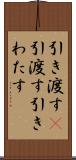 引き渡す
引渡す引き
わたす